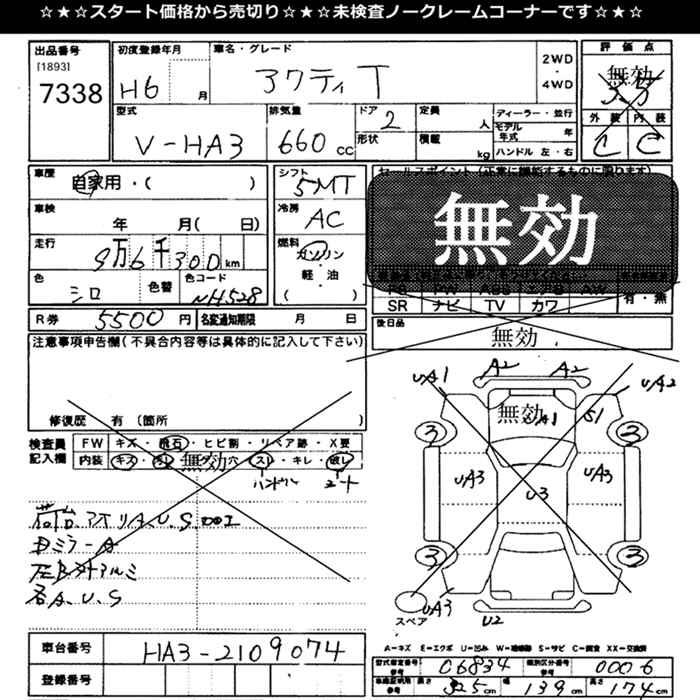 ☆★☆★スタート価格から売切り☆★☆★未検査ノークレームコーナーです☆★☆
出品番号 初度登録年月 車名・グレード 2WD・4WD 評価点
[1893]
7338 H6 月 アクティ T 無効 3.5
型式 排気量 ドア 定員 ディーラー・並行 外装 内装
V-HA3 660 cc 2 人 モデル年式 年 C C
形状 積載 kg ハンドル 左・右
車歴 自家用・( ) シフト 5MT セールスポイント(正常に機能するものに限ります)
車検 年 月( 日) 冷房 AC 無効
走行 9万6千300km 燃料 ガソリン・軽・油 ( )
色 シロ 色替 色コード NH528
PS PW ABS エアB AW 有・無
SR ナビ TV カワ
R券 5500円 名変通知期限 月 日 後日品 無効
注意事項申告欄(不具合内容等は具体的に記入して下さい)
修復歴 有 (箇所 )
検査員記入欄 FW キズ・飛石・ヒビ割・リペア跡・X要
内装 無効 穴・スレ・キレ・破レ
ハンドル シート
荷台
Bミラ-A
各A.U.S
UA1 A2 A2 UA2
無効 A1 S1
3 3
UA3 U3 UA3
3 3
スペア UA3 U2
A-キズ E-エクボ U-凹み W-補修跡 S-サビ C-腐食 XX-交換済
車台番号 HA3-2109074
登録番号
型式指定番号 参考 06834 類別区分番号 参考 0006
車検証明用 参考 長さ 325cm 幅 139cm 高さ 174cm